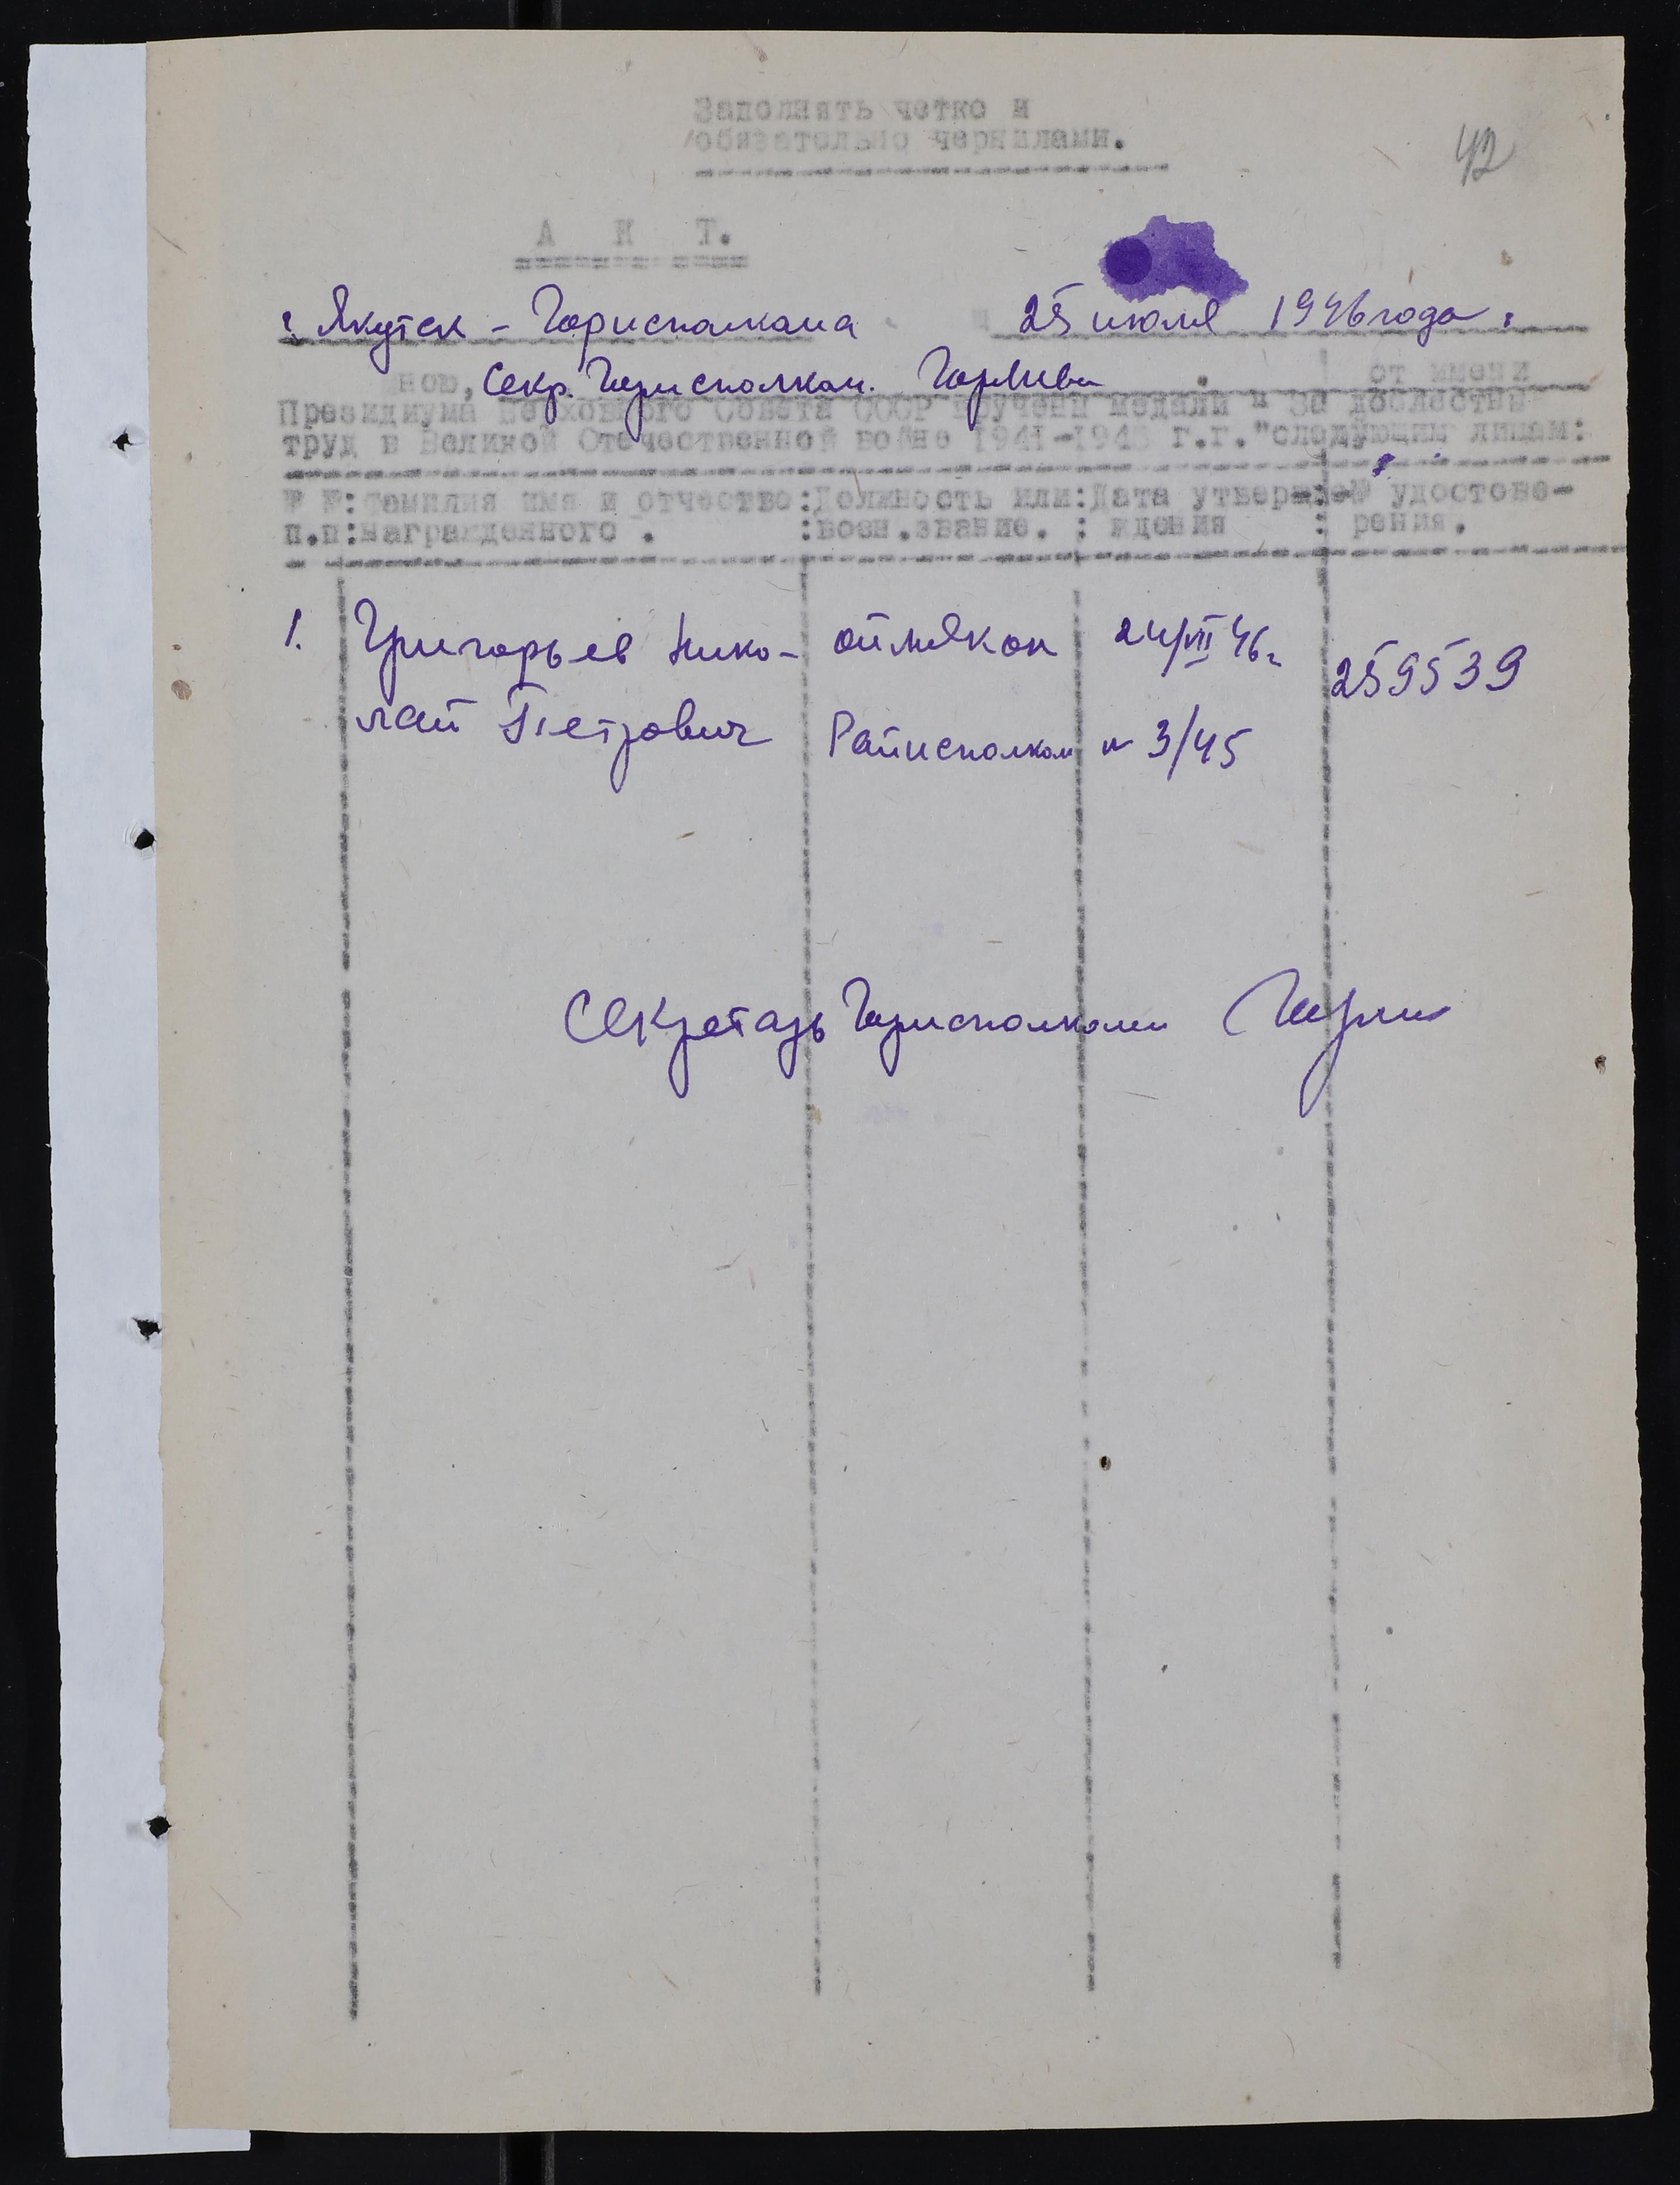 Заполнять четко и
/обязательно чернилами.
42
А К Т.
г. Якутск - Горисполкома 25 июля 1946 года.
мною, Секр. Горисполком. от имени
Президиума Верховного Совета СССР вручены медали " За доблестный
труд в Великой Отечественной войне 1941-1945 г.г." следующим лицам:
№ №:Фамилия имя и отчество:Должность или:Дата утвер-:№ удостове-
п.п:награжденного . :воен.звание. : ждения : рения.
1. Григорьев Нико- оймякон 24/VII 46г 259539
лай Петрович Райисполком № 3/45
Секретарь Горисполкома